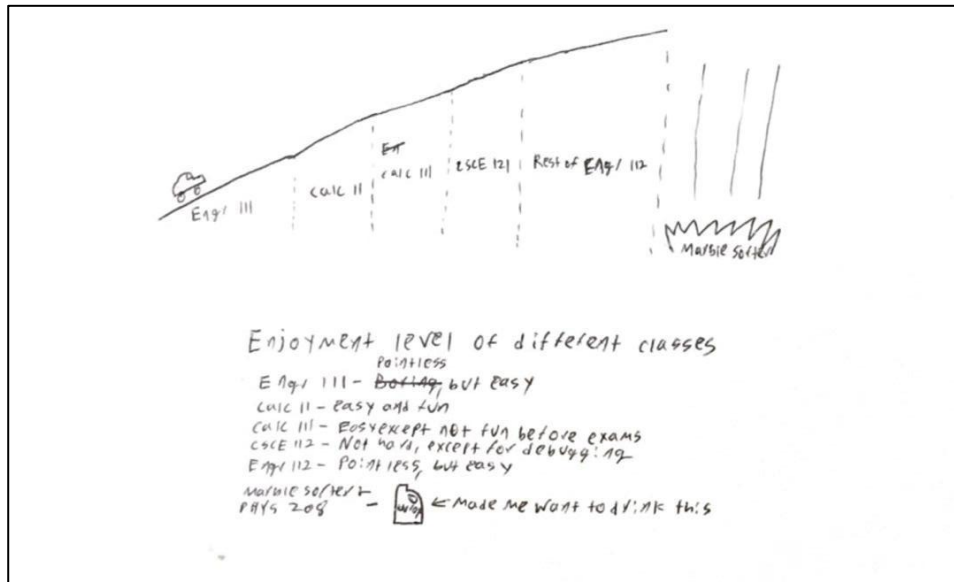 En
Engr 111
calc 11
calc 111
CSCE 121
Rest of Engr 112
Marble Sorter
Enjoyment level of different classes
Pointless
Engr 111 - Boring, but easy
calc 11 - easy and fun
calc 111 - Easy except not fun before exams
CSCE 112 - Not hard, except for debugging
Engr 112 - Pointless, but easy
Marble sorter +
PHYS 208 - ← Made me want to drink this